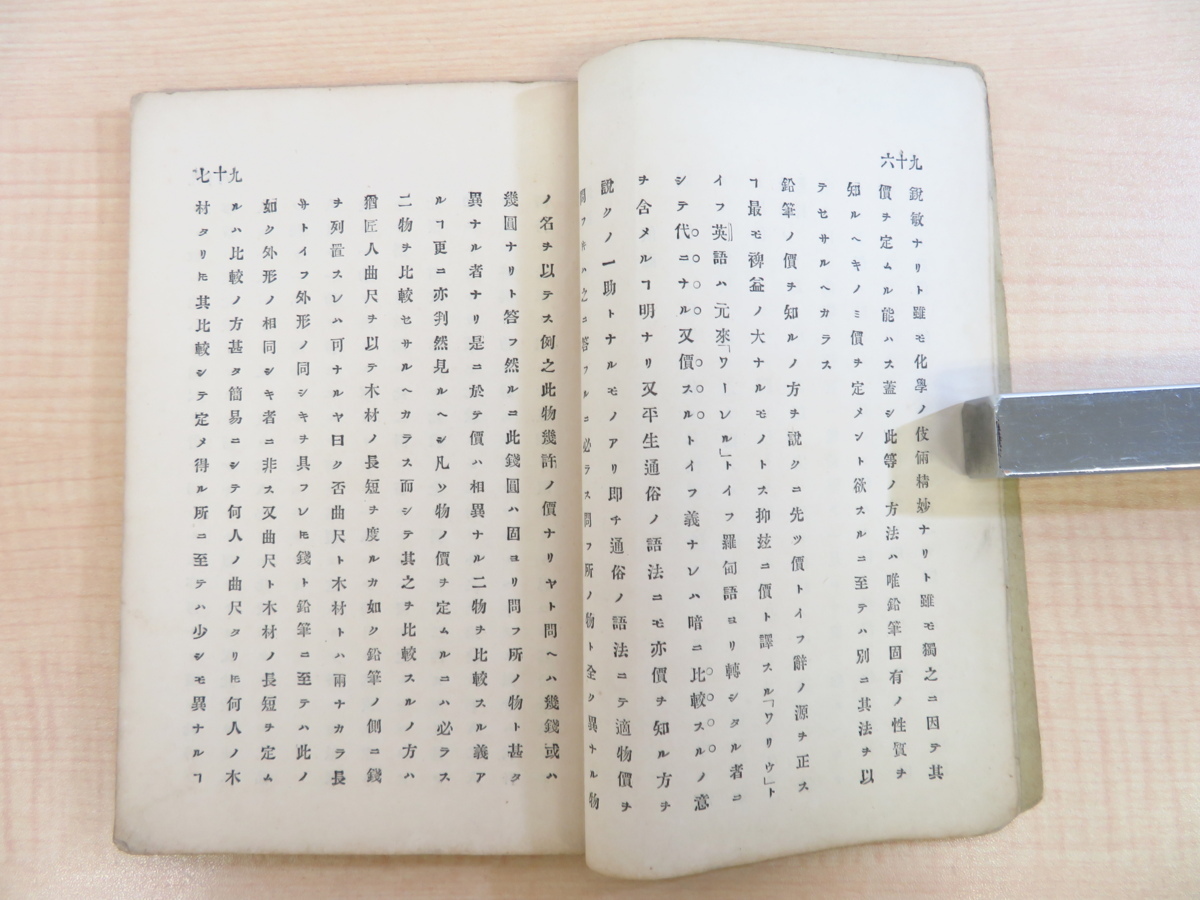 九十六
銳敏ナリト雖モ化學ノ伎倆精妙ナリト雖モ獨之ニ因テ其
價チ定ムル能ハス蓋シ此等ノ方法ハ唯鉛筆固有ノ性質チ
知ルヘキノミ價チ定メント欲スルニ至テハ別ニ其法チ以
テセサルヘカラス
鉛筆ノ價チ知ルノ方チ說クニ先ツ價トイフ辭ノ源チ正ス
ヿ最モ裨益ノ大ナルモノトス抑玆ニ價ト譯スル「ワリウ」ト
イフ英語ハ元來「ワーレル」トイフ羅甸語ヨリ轉シタル者ニ
シテ代ニナル又價スルトイフ義ナレハ暗ニ比較スルノ意
ヲ含メルヿ明ナリ又平生通俗ノ語法ニモ亦價チ知ル方チ
說クノ一助トナルモノアリ卽チ通俗ノ語法ニテ適物價チ
問フキハ之ニ答フルニ必ラス問フ所ノ物ト全ク異ナル物
九十七
ノ名チ以テス例之此物幾許ノ價ナリヤト問ヘハ幾錢或ハ
幾圓ナリト答フ然ルニ此錢圓ハ固ヨリ問フ所ノ物ト甚タ
異ナル者ナリ是ニ於テ價ハ相異ナル二物チ比較スル義ア
ルヿ更ニ亦判然見ルヘシ凡ソ物ノ價チ定ムルニハ必ラス
二物チ比較セサルヘカラス而シテ其之チ比較スルノ方ハ
猶匠人曲尺チ以テ木材ノ長短チ度ルカ如ク鉛筆ノ側ニ錢
ヲ列置スレハ可ナルヤ曰ク否曲尺ト木材トハ兩ナカラ長
サトイフ外形ノ同シキチ具フレ𪜈錢ト鉛筆ニ至テハ此ノ
如ク外形ノ相同シキ者ニ非ス又曲尺ト木材ノ長短チ定ム
ルハ比較ノ方甚タ簡易ニシテ何人ノ曲尺タリ𪜈何人ノ木
材タリ𪜈其比較シテ定メ得ル所ニ至テハ少シモ異ナルヿ